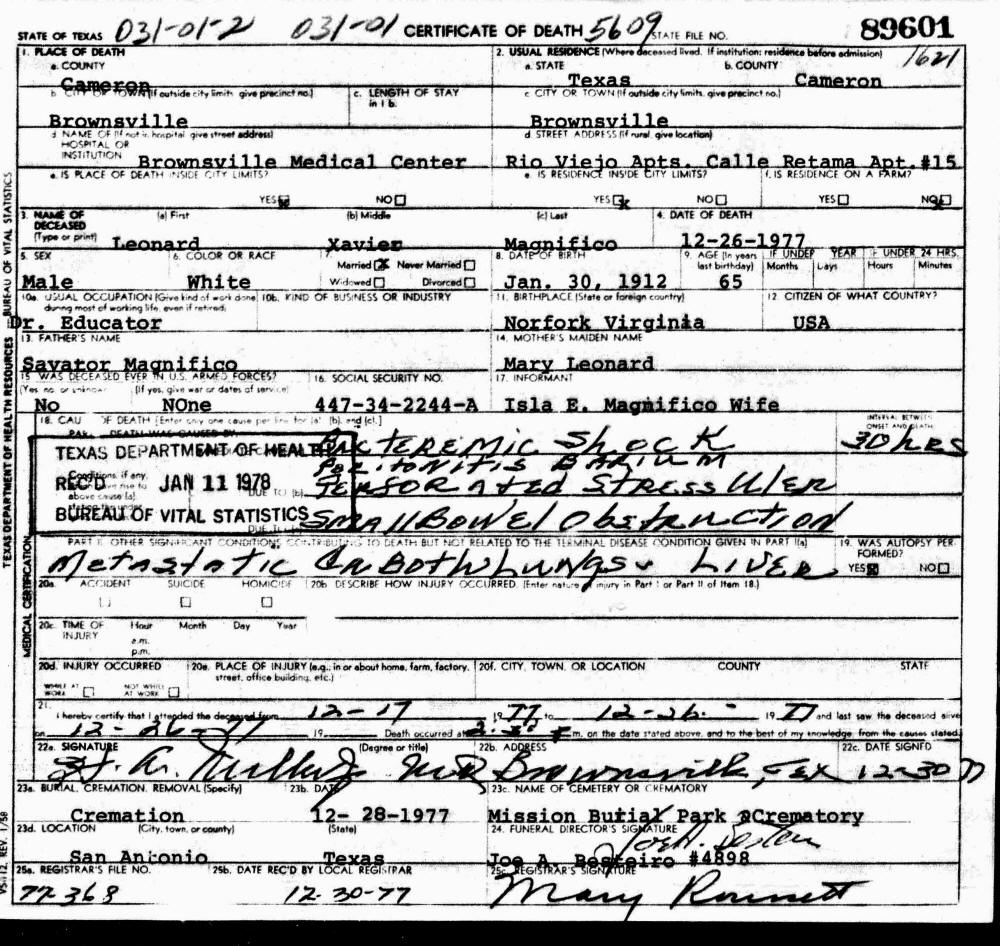 STATE OF TEXAS 031-01-2 031-01 CERTIFICATE OF DEATH 5609 STATE FILE NO. 89601
1. PLACE OF DEATH
a. COUNTY
Cameron
2. USUAL RESIDENCE (Where deceased lived. If institution: residence before admission) 1621
a. STATE b. COUNTY
Texas Cameron
b. CITY OR TOWN (If outside city limits, give precinct no.) c. LENGTH OF STAY in 1 b.
Brownsville
c. CITY OR TOWN (If outside city limits, give precinct no.)
Brownsville
d. NAME OF (If not in hospital, give street address)
HOSPITAL OR
INSTITUTION Brownsville Medical Center
d. STREET ADDRESS (If rural, give location)
Rio Viejo Apts. Calle Retama Apt.#15
e. IS PLACE OF DEATH INSIDE CITY LIMITS?
YES NO
e. IS RESIDENCE INSIDE CITY LIMITS? f. IS RESIDENCE ON A FARM?
YES NO YES NO
3. NAME OF DECEASED (Type or print) (a) First (b) Middle (c) Last 4. DATE OF DEATH
Leonard Xavier Magnifico 12-26-1977
5. SEX 6. COLOR OR RACE 7. Married Never Married Widowed Divorced
Male White
8. DATE OF BIRTH 9. AGE (In years last birthday) IF UNDER YEAR IF UNDER 24 HRS.
Months Days Hours Minutes
Jan. 30, 1912 65
10a. USUAL OCCUPATION (Give kind of work done during most of working life, even if retired) 10b. KIND OF BUSINESS OR INDUSTRY
Dr. Educator
11. BIRTHPLACE (State or foreign country) 12. CITIZEN OF WHAT COUNTRY?
Norfork Virginia USA
13. FATHER'S NAME 14. MOTHER'S MAIDEN NAME
Savator Magnifico Mary Leonard
15. WAS DECEASED EVER IN U.S. ARMED FORCES? 16. SOCIAL SECURITY NO. 17. INFORMANT
(Yes, no, or unknown) (If yes, give war or dates of service)
No NOne 447-34-2244-A Isla E. Magnifico Wife
18. CAU OF DEATH [Enter only one cause per line for (a), (b), and (c).] INTERVAL BETWEEN ONSET AND DEATH
PART DEATH WAS CAUSED BY
BACTEREMIC SHOCK 30 hrs
PERITONITIS BARIUM
Conditions, if any, rise to above cause (a), DUE TO (b) PERFORATED STRESS ULCER
DUE TO SMALL BOWEL Obstruction
TEXAS DEPARTMENT OF HEALTH
REC'D JAN 11 1978
BUREAU OF VITAL STATISTICS
PART II. OTHER SIGNIFICANT CONDITIONS CONTRIBUTING TO DEATH BUT NOT RELATED TO THE TERMINAL DISEASE CONDITION GIVEN IN PART I(a) 19. WAS AUTOPSY PERFORMED?
Metastatic CA BOTH LUNGS & LIVER YES NO
20a. ACCIDENT SUICIDE HOMICIDE 20b. DESCRIBE HOW INJURY OCCURRED. (Enter nature of injury in Part I or Part II of Item 18.)
20c. TIME OF INJURY Hour Month Day Year
a.m.
p.m.
20d. INJURY OCCURRED 20e. PLACE OF INJURY (e.g., in or about home, farm, factory, street, office building, etc.) 20f. CITY, TOWN, OR LOCATION COUNTY STATE
WHILE AT WORK NOT WHILE AT WORK
21. I hereby certify that I attended the deceased from 12-17 19 77 to 12-26- 19 77 and last saw the deceased alive
on 12-26-77 19 Death occurred at m. on the date stated above, and to the best of my knowledge, from the causes stated.
22a. SIGNATURE (Degree or title) 22b. ADDRESS 22c. DATE SIGNED
MD Brownsville, Tex 12-30 77
23a. BURIAL, CREMATION, REMOVAL (Specify) 23b. DATE 23c. NAME OF CEMETERY OR CREMATORY
Cremation 12- 28-1977 Mission Burial Park Crematory
23d. LOCATION (City, town, or county) (State) 24. FUNERAL DIRECTOR'S SIGNATURE
San Antonio Texas Joe A. Besteiro #4898
25a. REGISTRAR'S FILE NO. 25b. DATE REC'D BY LOCAL REGISTRAR 25c. REGISTRAR'S SIGNATURE
77-368 12-30-77 Mary
TEXAS DEPARTMENT OF HEALTH RESOURCES — BUREAU OF VITAL STATISTICS
MEDICAL CERTIFICATION
VS-112, REV. 1/58